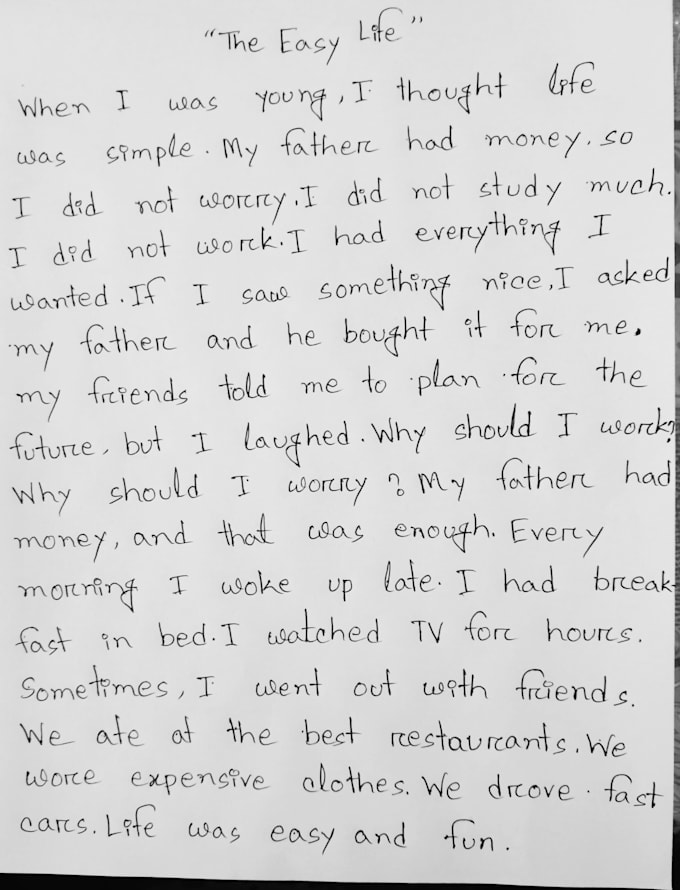 "The Easy Life"
When I was young, I thought life
was simple. My father had money. so
I did not worry. I did not study much.
I did not work. I had everything I
wanted. If I saw something nice, I asked
my father and he bought it for me.
my friends told me to plan for the
future, but I laughed. Why should I work?
Why should I worry? My father had
money, and that was enough. Every
morning I woke up late. I had break-
fast in bed. I watched TV for hours.
Sometimes, I went out with friends.
We ate at the best restaurants. We
wore expensive clothes. We drove fast
cars. Life was easy and fun.